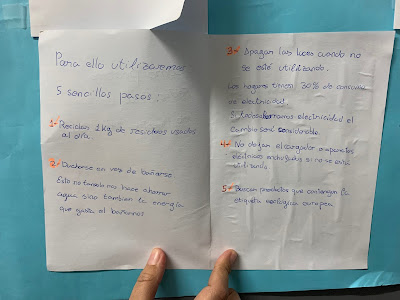 Para ello utilizaremos
5 sencillos pasos:
1- Reciclar 1Kg de residuos usados
al día
2- Ducharse en vez de bañarse
Esto no tansolo nos hace ahorrar
agua sino tambien la energía
que gasta el bañarnos
3- Apagar las luces cuando no
se esté utilizando.
Los hogares tienen 30% de consumo
de electricidad.
Si todos ahorramos electricidad el
cambio será considerable.
4- No dejar el cargador o aparatos
eléctricos enchufados si no se está
utilizando
5- Buscar productos que contengan la
etiqueta ecológica europea